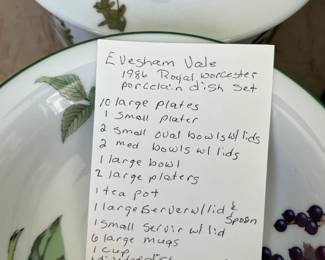 Evesham Vale
1986 Royal Worcester
porcelain dish set
10 large plates
1 small plater
2 small oval bowls w/ lids
2 med bowls w/ lids
1 large bowl
2 large platers
1 tea pot
1 large server w/ lid & spoon
1 small servir w/ lid
6 large mugs
1 cup